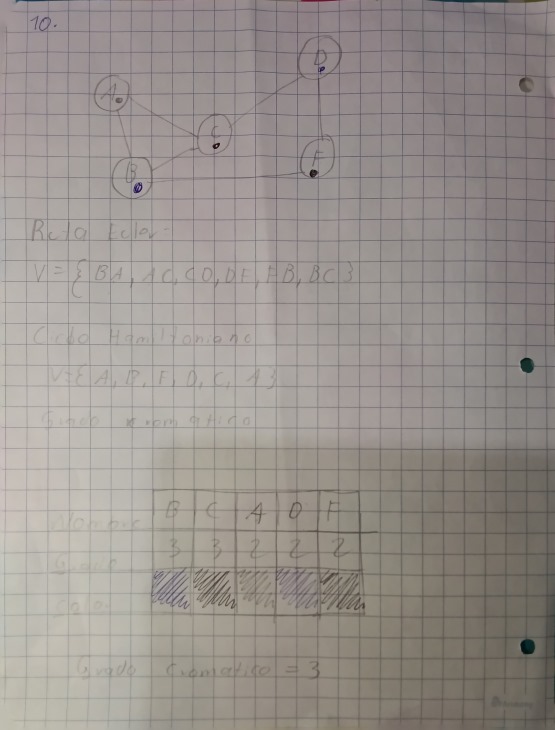 10.
D
A
C
B
F
Ruta Euler=
V={BA, AC, CD, DF, FB, BC}
Ciclo Hamiltoniano
V={A, B, F, D, C, A}
Grado cromatico
Nombre B C A D F
Grado 3 3 2 2 2
Color
Grado Cromatico = 3